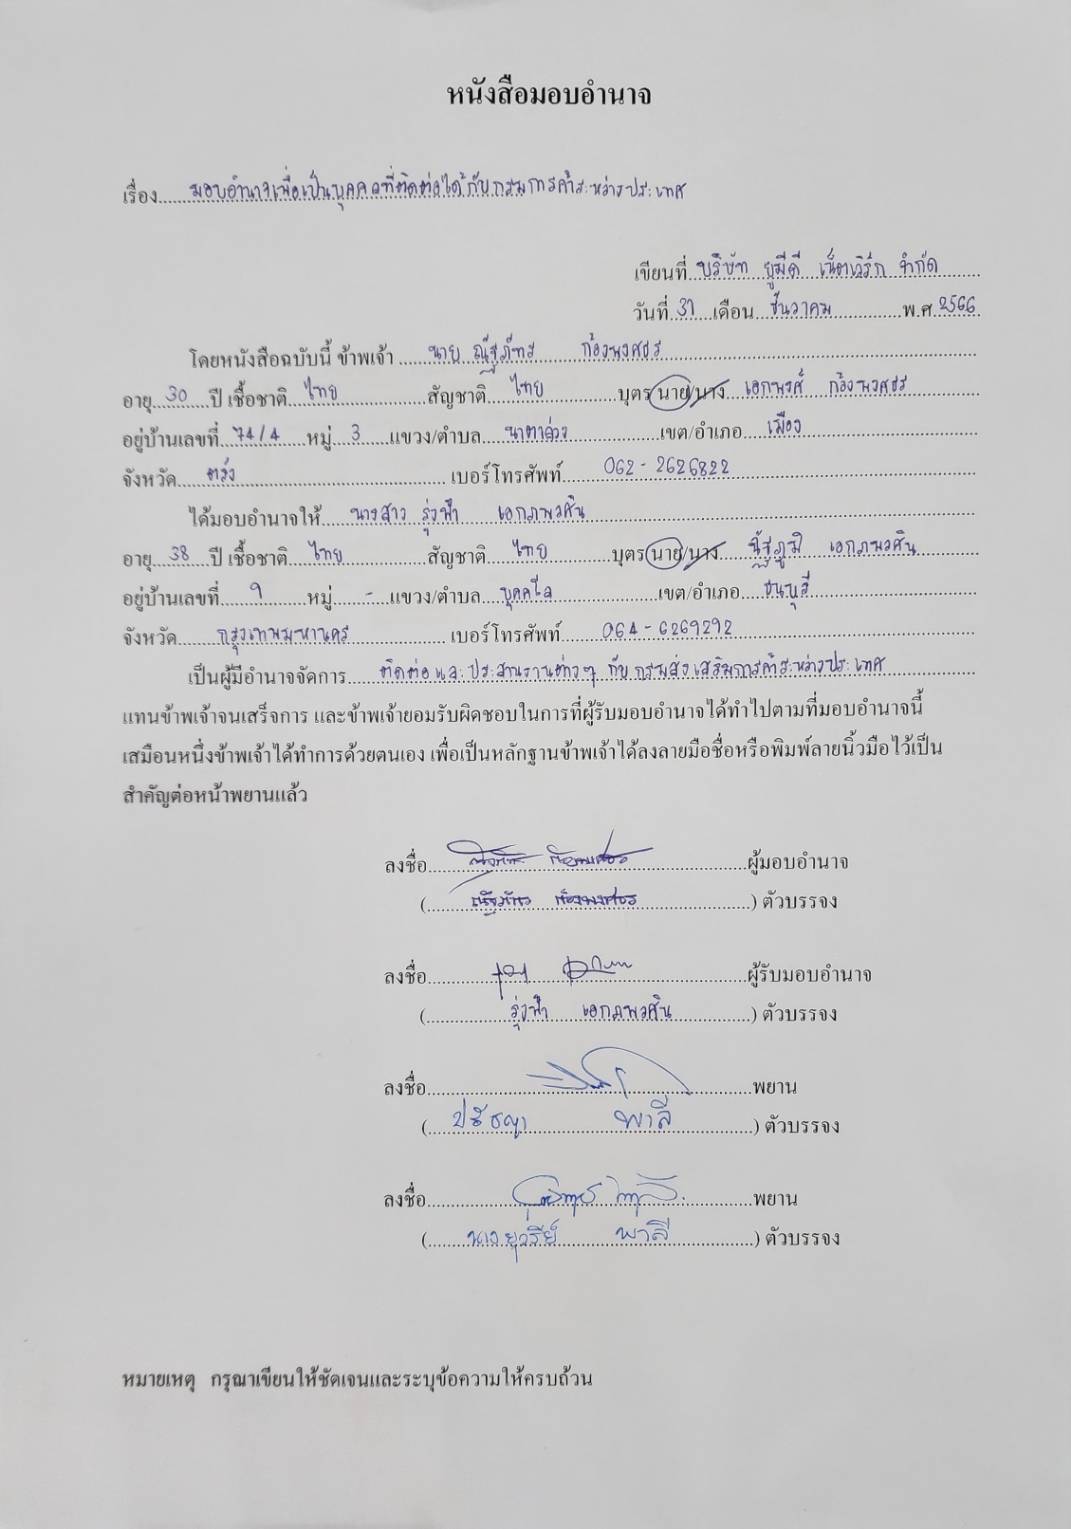 หนังสือมอบอำนาจ
เรื่อง มอบอำนาจเพื่อเป็นบุคคลที่ติดต่อได้กับกรมการค้าระหว่างประเทศ
เขียนที่ บริษัท ยูมีดี เน็ตเวิร์ก จำกัด
วันที่ 31 เดือน ธันวาคม พ.ศ. 2566
โดยหนังสือฉบับนี้ ข้าพเจ้า นาย ณัฐภัทร ก้องพงศธร
อายุ 30 ปี เชื้อชาติ ไทย สัญชาติ ไทย บุตร นาย/นาง เอกพงศ์ ก้องพงศธร
อยู่บ้านเลขที่ 74/4 หมู่ 3 แขวง/ตำบล นาตาล่วง เขต/อำเภอ เมือง
จังหวัด ตรัง เบอร์โทรศัพท์ 062-2626822
ได้มอบอำนาจให้ นางสาว รุ่งฟ้า เอกภพวศิน
อายุ 38 ปี เชื้อชาติ ไทย สัญชาติ ไทย บุตร นาย/นาง ณัฐภูมิ เอกภพวศิน
อยู่บ้านเลขที่ 9 หมู่ - แขวง/ตำบล บุคคโล เขต/อำเภอ ธนบุรี
จังหวัด กรุงเทพมหานคร เบอร์โทรศัพท์ 064-6269292
เป็นผู้มีอำนาจจัดการ ติดต่อและประสานงานต่างๆ กับกรมส่งเสริมการค้าระหว่างประเทศ
แทนข้าพเจ้าจนเสร็จการ และข้าพเจ้ายอมรับผิดชอบในการที่ผู้รับมอบอำนาจได้ทำไปตามที่มอบอำนาจนี้
เสมือนหนึ่งข้าพเจ้าได้ทำการด้วยตนเอง เพื่อเป็นหลักฐานข้าพเจ้าได้ลงลายมือชื่อหรือพิมพ์ลายนิ้วมือไว้เป็น
สำคัญต่อหน้าพยานแล้ว
ลงชื่อ ณัฐภัทร ก้องพงศธร ผู้มอบอำนาจ
( ณัฐภัทร ก้องพงศธร ) ตัวบรรจง
ลงชื่อ ผู้รับมอบอำนาจ
( รุ่งฟ้า เอกภพวศิน ) ตัวบรรจง
ลงชื่อ พยาน
( ปรัชญา พาลี ) ตัวบรรจง
ลงชื่อ พยาน
( นางยุวรีย์ พาลี ) ตัวบรรจง
หมายเหตุ กรุณาเขียนให้ชัดเจนและระบุข้อความให้ครบถ้วน